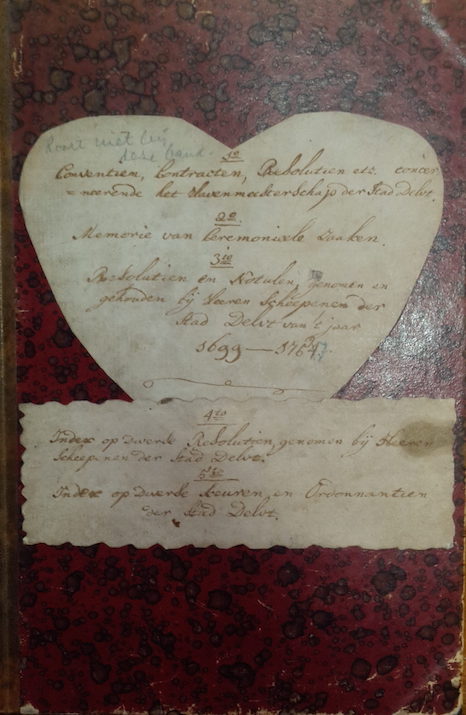 Hoort niet bij
deze band.
1o
Conventien, Contracten, Resolutien etc. concer
=neerende het Havenmeesterschap der Stad Delvt.
2o.
Memorie van Ceremonieele Zaaken.
3tio
Resolutien en Notulen, genomen en
gehouden bij Heeren Scheepenen der
Stad Delvt van 't jaar
1699 — 1764
4to
Index op Diverse Resolutien, genomen bij Heeren
Scheepenen der Stad Delvt.
5to
Index op Diverse Keuren, en Ordonnantien
der Stad Delvt.